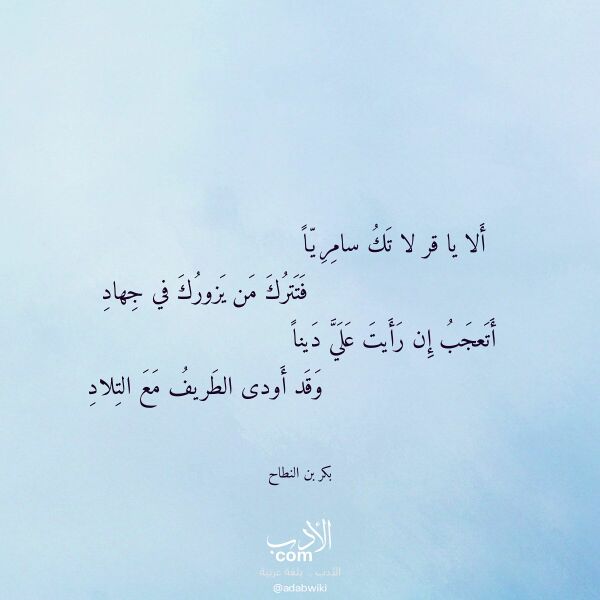 أَلا يا قر لا تَكُ سامِرِيّاً
فَتَترُكَ مَن يَزورُكَ في جِهادِ
أَتَعجَبُ إِن رَأَيتَ عَلَيَّ دَيناً
وَقَد أَودى الطَريفُ مَعَ التِلادِ
بكر بن النطاح
الأدب
com
الأدب .. بلغة عربية
@adabwiki